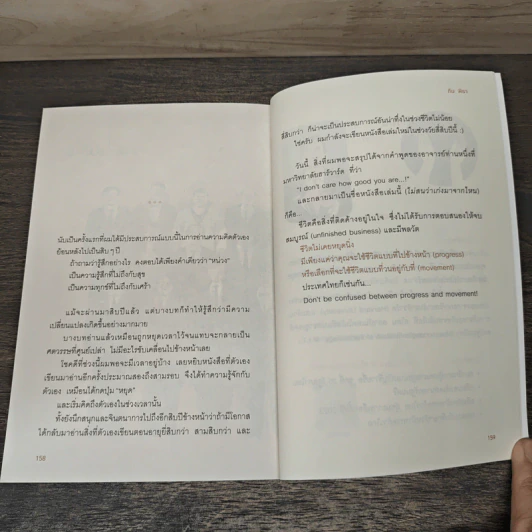 นับเป็นครั้งแรกที่ผมได้มีประสบการณ์แบบนี้ในการอ่านความคิดตัวเอง
ย้อนหลังไปเป็นสิบ ๆ ปี
ถ้าถามว่ารู้สึกอย่างไร คงตอบได้เพียงคำเดียวว่า "หน่วง"
เป็นความรู้สึกที่ไม่ถึงกับสุข
เป็นความทุกข์ที่ไม่ถึงกับเศร้า
แม้จะผ่านมาสิบปีแล้ว แต่บางบทก็ทำให้รู้สึกว่ามีความ
เปลี่ยนแปลงเกิดขึ้นอย่างมากมาย
บางบทอ่านแล้วเหมือนถูกหยุดเวลาไว้จนแทบจะกลายเป็น
ศตวรรษที่ศูนย์เปล่า ไม่มีอะไรขับเคลื่อนไปข้างหน้าเลย
โชคดีที่ช่วงนี้ผมพอจะมีเวลาอยู่บ้าง เลยหยิบหนังสือที่ตัวเอง
เขียนมาอ่านอีกครั้งประมาณสองถึงสามรอบ จึงได้ทำความรู้จักกับ
ตัวเอง เหมือนได้กดปุ่ม "หยุด"
และเริ่มคิดถึงตัวเองในช่วงเวลานั้น
ทั้งยังนึกสนุกและจินตนาการไปถึงอีกสิบปีข้างหน้าว่าถ้ามีโอกาส
ได้กลับมาอ่านสิ่งที่ตัวเองเขียนตอนอายุยี่สิบกว่า สามสิบกว่า และ
158
สี่สิบกว่า ก็น่าจะเป็นประสบการณ์อันน่าทึ่งในช่วงชีวิตไม่น้อย
ใช่ครับ ผมกำลังจะเขียนหนังสือเล่มใหม่ในช่วงวัยสี่สิบปีนี้ :)
วันนี้ สิ่งที่ผมพอจะสรุปได้จากคำพูดของอาจารย์ท่านหนึ่งที่
มหาวิทยาลัยฮาร์วาร์ด ที่ว่า
"I don't care how good you are...!"
และกลายมาเป็นชื่อหนังสือเล่มนี้ (ไม่สนว่าเก่งมาจากไหน)
ก็คือ...
ชีวิตคือสิ่งที่ติดค้างอยู่ในใจ ซึ่งไม่ได้รับการตอบสนองให้จบ
สมบูรณ์ (unfinished business) และมีพลวัต
ชีวิตไม่เคยหยุดนิ่ง
มีเพียงแค่ว่าคุณจะใช้ชีวิตแบบที่ไปข้างหน้า (progress)
หรือเลือกที่จะใช้ชีวิตแบบที่วนอยู่กับที่ (movement)
ประเทศไทยก็เช่นกัน...
Don't be confused between progress and movement!
159